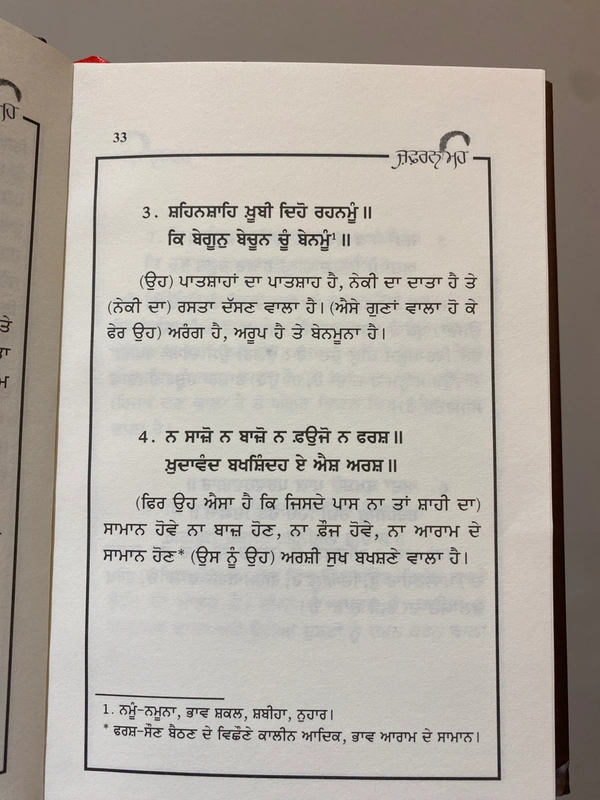 33
ਜ਼ਫ਼ਰਨਾਮਹ
3. ਸ਼ਹਿਨਸ਼ਾਹਿ ਖ਼ੂਬੀ ਦਿਹੋ ਰਹਨਮੂੰ॥
ਕਿ ਬੇਗੂਨੁ ਬੇਚੂਨ ਚੂੰ ਬੇਨਮੂੰ¹॥
(ਉਹ) ਪਾਤਸ਼ਾਹਾਂ ਦਾ ਪਾਤਸ਼ਾਹ ਹੈ, ਨੇਕੀ ਦਾ ਦਾਤਾ ਹੈ ਤੇ
(ਨੇਕੀ ਦਾ) ਰਸਤਾ ਦੱਸਣ ਵਾਲਾ ਹੈ। (ਐਸੇ ਗੁਣਾਂ ਵਾਲਾ ਹੋ ਕੇ
ਫੇਰ ਉਹ) ਅਰੰਗ ਹੈ, ਅਰੂਪ ਹੈ ਤੇ ਬੇਨਮੂਨਾ ਹੈ।
4. ਨ ਸਾਜ਼ੋ ਨ ਬਾਜ਼ੋ ਨ ਫ਼ਉਜੋ ਨ ਫਰਸ਼॥
ਖ਼ੁਦਾਵੰਦ ਬਖਸ਼ਿੰਦਹ ਏ ਐਸ਼ ਅਰਸ਼॥
(ਫਿਰ ਉਹ ਐਸਾ ਹੈ ਕਿ ਜਿਸਦੇ ਪਾਸ ਨਾ ਤਾਂ ਸ਼ਾਹੀ ਦਾ)
ਸਾਮਾਨ ਹੋਵੇ ਨਾ ਬਾਜ਼ ਹੋਣ, ਨਾ ਫ਼ੌਜ ਹੋਵੇ, ਨਾ ਆਰਾਮ ਦੇ
ਸਾਮਾਨ ਹੋਣ* (ਉਸ ਨੂੰ ਉਹ) ਅਰਸ਼ੀ ਸੁਖ ਬਖਸ਼ਣੇ ਵਾਲਾ ਹੈ।
1. ਨਮੂੰ-ਨਮੂਨਾ, ਭਾਵ ਸ਼ਕਲ, ਸ਼ਬੀਹਾ, ਨੁਹਾਰ।
* ਫਰਸ਼-ਸੌਣ ਬੈਠਣ ਦੇ ਵਿਛੌਣੇ ਕਾਲੀਨ ਆਦਿਕ, ਭਾਵ ਆਰਾਮ ਦੇ ਸਾਮਾਨ।